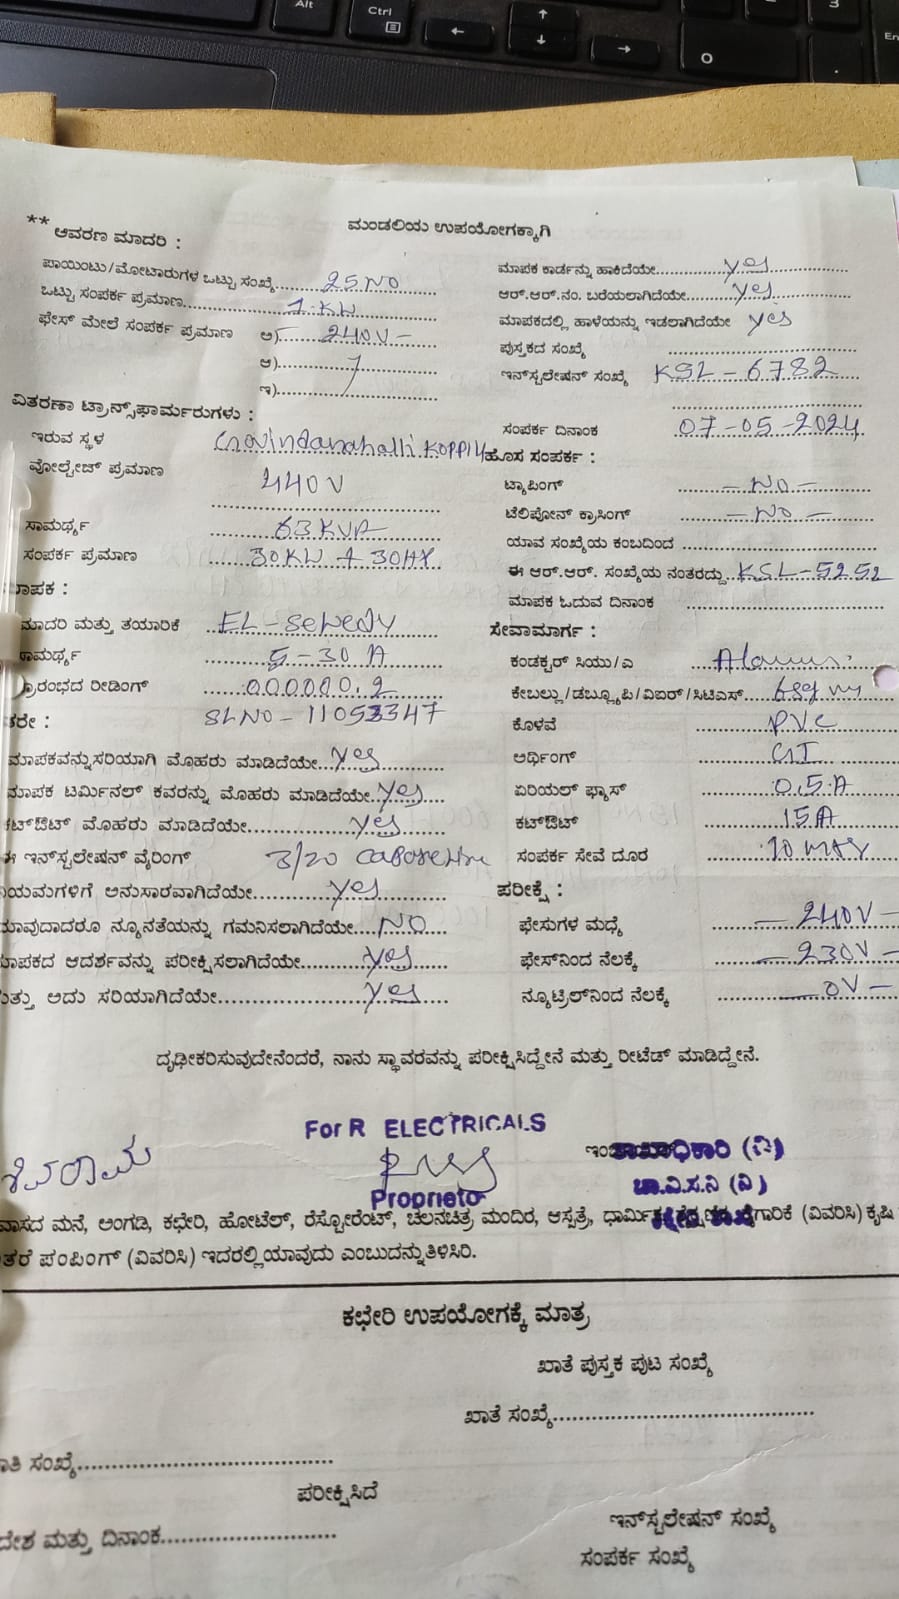 Alt
Ctrl
O
3
En
** ಆವರಣ ಮಾದರಿ :
ಮಂಡಲಿಯ ಉಪಯೋಗಕ್ಕಾಗಿ
ಪಾಯಿಂಟು/ಮೋಟಾರುಗಳ ಒಟ್ಟು ಸಂಖ್ಯೆ 25 NO
ಒಟ್ಟು ಸಂಪರ್ಕ ಪ್ರಮಾಣ 1 KW
ಫೇಸ್ ಮೇಲೆ ಸಂಪರ್ಕ ಪ್ರಮಾಣ ಅ) 240V -
ಆ)
ಇ)
ವಿತರಣಾ ಟ್ರಾನ್ಸ್‌ಫಾರ್ಮರುಗಳು :
ಇರುವ ಸ್ಥಳ Govindanahalli KOPPLU
ವೋಲ್ಟೇಜ್ ಪ್ರಮಾಣ 440V
ಸಾಮರ್ಥ್ಯ 63 KVA
ಸಂಪರ್ಕ ಪ್ರಮಾಣ 30KW + 30HP
ಮಾಪಕ :
ಮಾದರಿ ಮತ್ತು ತಯಾರಿಕೆ EL-Sewedy
ಸಾಮರ್ಥ್ಯ 5-30 A
ಪ್ರಾರಂಭದ ರೀಡಿಂಗ್ 000000.2
ಇತರೇ : SLNO - 11053347
ಮಾಪಕವನ್ನು ಸರಿಯಾಗಿ ಮೊಹರು ಮಾಡಿದೆಯೇ yes
ಮಾಪಕ ಟರ್ಮಿನಲ್ ಕವರನ್ನು ಮೊಹರು ಮಾಡಿದೆಯೇ yes
ಕಟ್‌ಔಟ್ ಮೊಹರು ಮಾಡಿದೆಯೇ yes
ಈ ಇನ್‌ಸ್ಟಲೇಷನ್ ವೈರಿಂಗ್ 3/20
ನಿಯಮಗಳಿಗೆ ಅನುಸಾರವಾಗಿದೆಯೇ yes
ಯಾವುದಾದರೂ ನ್ಯೂನತೆಯನ್ನು ಗಮನಿಸಲಾಗಿದೆಯೇ NO
ಮಾಪಕದ ಆದರ್ಶವನ್ನು ಪರೀಕ್ಷಿಸಲಾಗಿದೆಯೇ yes
ಮತ್ತು ಅದು ಸರಿಯಾಗಿದೆಯೇ yes
ಮಾಪಕ ಕಾರ್ಡನ್ನು ಹಾಕಿದೆಯೇ yes
ಆರ್.ಆರ್.ನಂ. ಬರೆಯಲಾಗಿದೆಯೇ yes
ಮಾಪಕದಲ್ಲಿ ಹಾಳೆಯನ್ನು ಇಡಲಾಗಿದೆಯೇ yes
ಪುಸ್ತಕದ ಸಂಖ್ಯೆ
ಇನ್‌ಸ್ಟಲೇಷನ್ ಸಂಖ್ಯೆ KSL - 6782
ಸಂಪರ್ಕ ದಿನಾಂಕ 07-05-2024
ಹೊಸ ಸಂಪರ್ಕ :
ಟ್ಯಾಪಿಂಗ್ - NO -
ಟೆಲಿಪೋನ್ ಕ್ರಾಸಿಂಗ್ - NO -
ಯಾವ ಸಂಖ್ಯೆಯ ಕಂಬದಿಂದ
ಈ ಆರ್.ಆರ್. ಸಂಖ್ಯೆಯ ನಂತರದ್ದು KSL-5252
ಮಾಪಕ ಓದುವ ದಿನಾಂಕ
ಸೇವಾಮಾರ್ಗ :
ಕಂಡಕ್ಟರ್ ಸಿಯು/ಎ
ಕೇಬಲ್ಲು/ಡಬ್ಲ್ಯೂಪಿ/ವಿಐಆರ್/ಸಿಟಿಎಸ್
ಕೊಳವೆ PVC
ಅರ್ಥಿಂಗ್ GI
ಏರಿಯಲ್ ಫ್ಯೂಸ್ 0.5 A
ಕಟ್‌ಔಟ್ 15A
ಸಂಪರ್ಕ ಸೇವೆ ದೂರ
ಪರೀಕ್ಷೆ :
ಫೇಸುಗಳ ಮಧ್ಯೆ - 240V -
ಫೇಸ್‌ನಿಂದ ನೆಲಕ್ಕೆ - 230V -
ನ್ಯೂಟ್ರಿಲ್‌ನಿಂದ ನೆಲಕ್ಕೆ - 0V -
ದೃಢೀಕರಿಸುವುದೇನೆಂದರೆ, ನಾನು ಸ್ಥಾವರವನ್ನು ಪರೀಕ್ಷಿಸಿದ್ದೇನೆ ಮತ್ತು ರೀಟೆಡ್ ಮಾಡಿದ್ದೇನೆ.
For R ELECTRICALS
ಶಿವರಾಮ
Proprieto
ಶಾಖಾಧಿಕಾರಿ (ವಿ)
ಚಾ.ವಿ.ಸ.ನಿ (ನಿ)
ವಾಸದ ಮನೆ, ಅಂಗಡಿ, ಕಛೇರಿ, ಹೋಟೆಲ್, ರೆಸ್ಟೋರೆಂಟ್, ಚಲನಚಿತ್ರ ಮಂದಿರ, ಆಸ್ಪತ್ರೆ, (ವಿವರಿಸಿ) ಕೃಷಿ
ಪಂಪಿಂಗ್ (ವಿವರಿಸಿ) ಇದರಲ್ಲಿ ಯಾವುದು ಎಂಬುದನ್ನು ತಿಳಿಸಿರಿ.
ಕಛೇರಿ ಉಪಯೋಗಕ್ಕೆ ಮಾತ್ರ
ಖಾತೆ ಪುಸ್ತಕ ಪುಟ ಸಂಖ್ಯೆ
ಖಾತೆ ಸಂಖ್ಯೆ
ಸಂಖ್ಯೆ
ಪರೀಕ್ಷಿಸಿದೆ
ಮತ್ತು ದಿನಾಂಕ
ಇನ್‌ಸ್ಟಲೇಷನ್ ಸಂಖ್ಯೆ
ಸಂಪರ್ಕ ಸಂಖ್ಯೆ